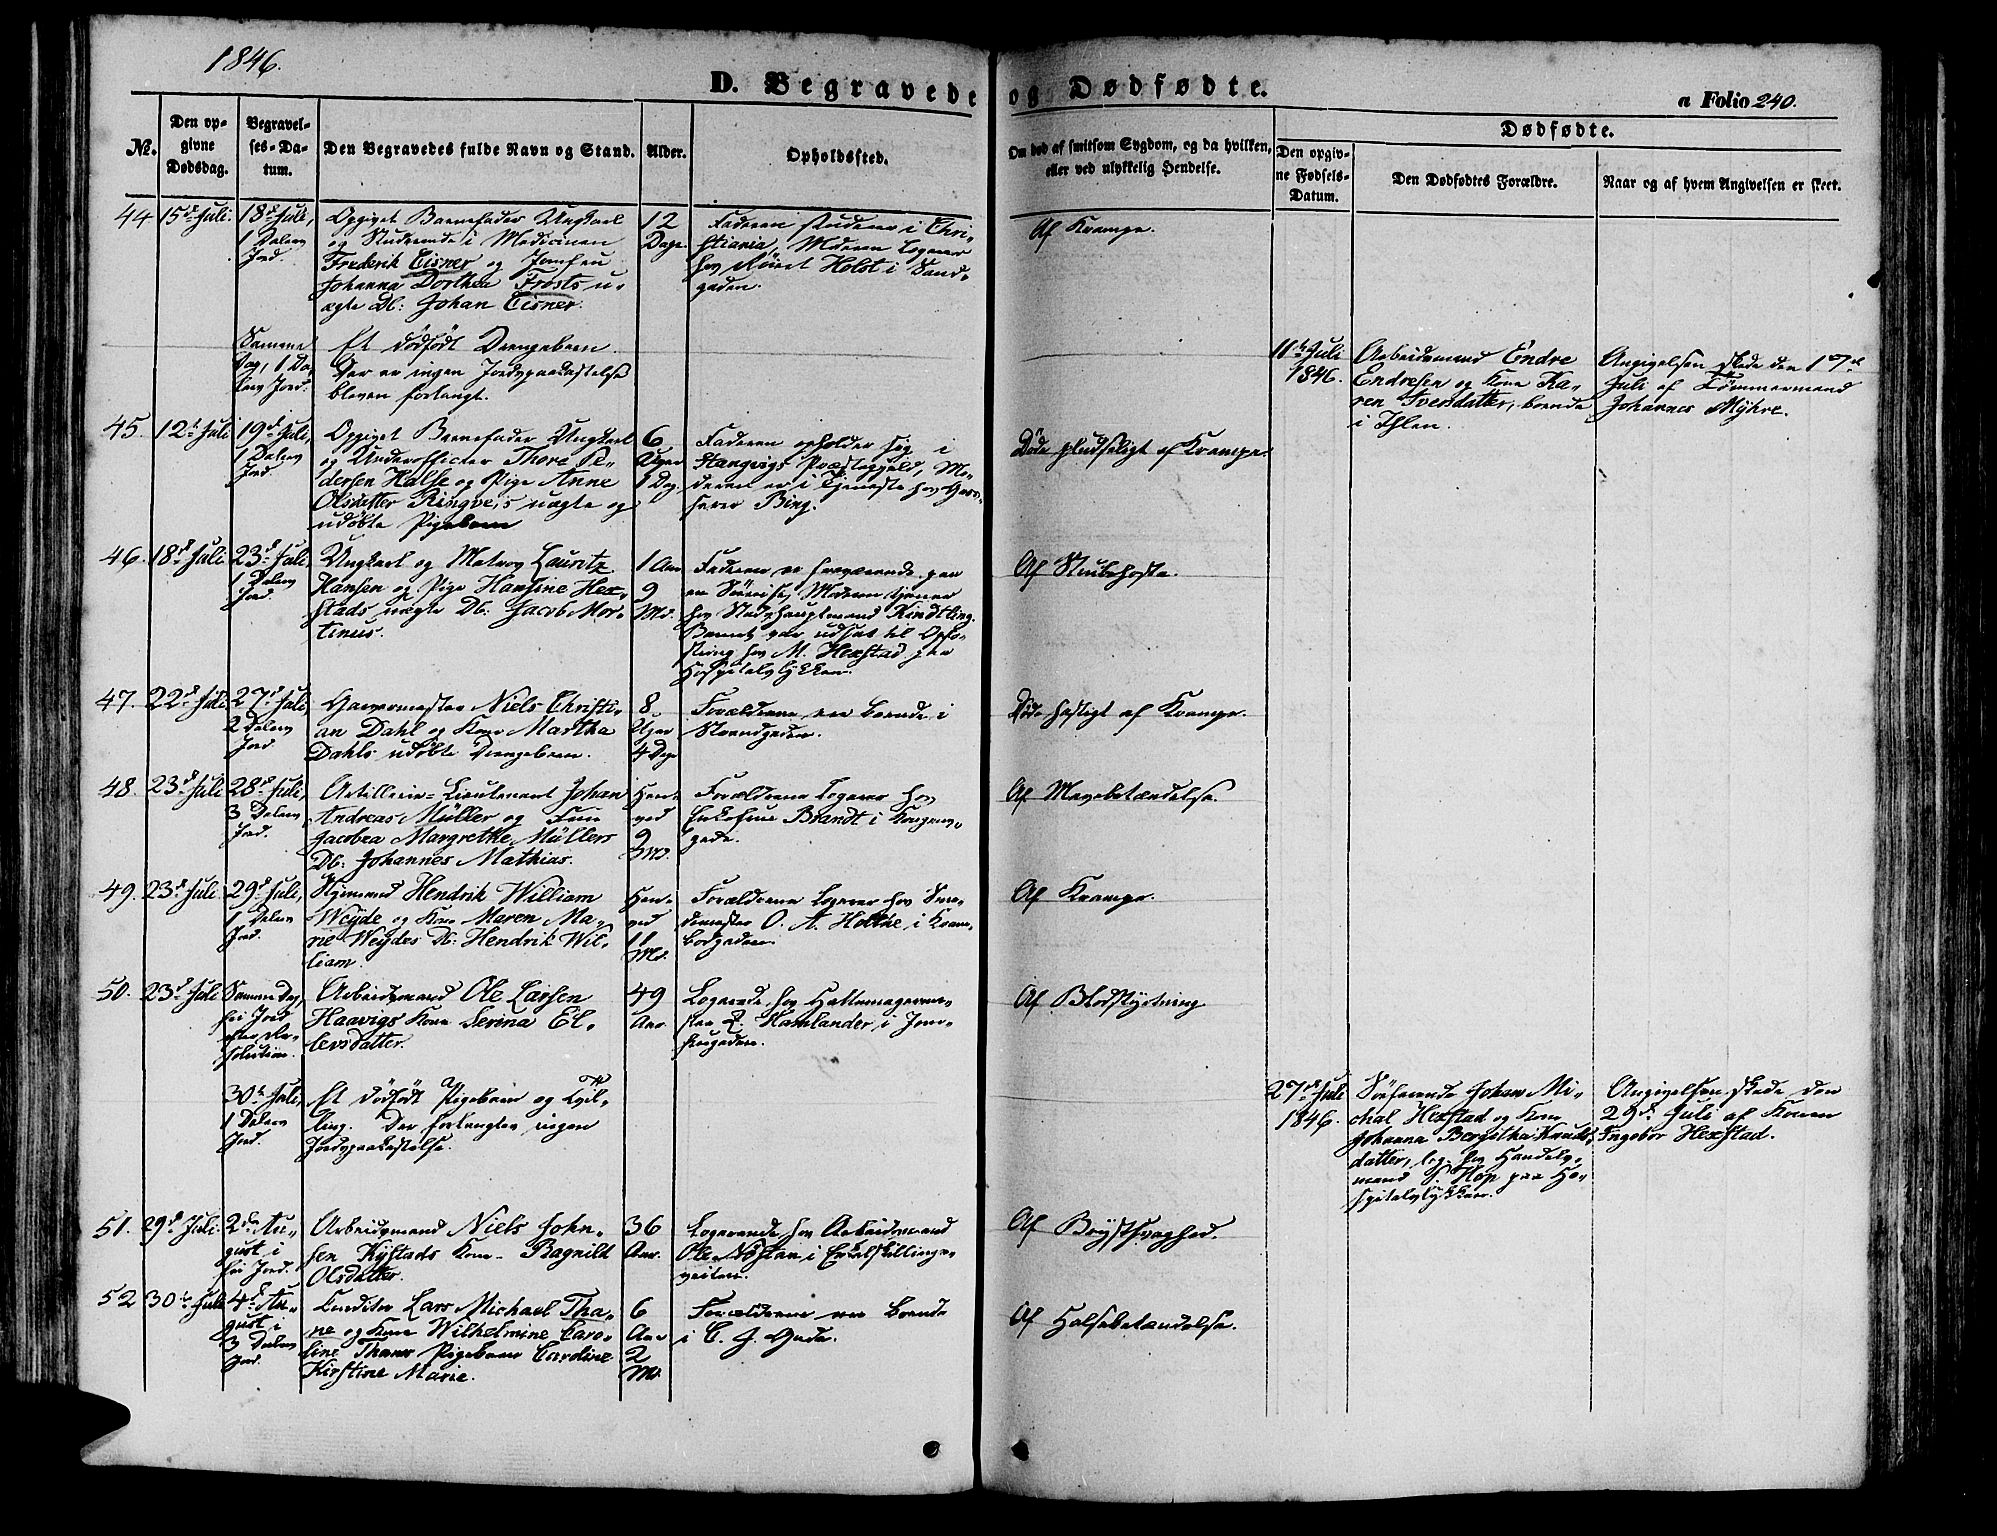 1846.
D. Begravede og Dødfødte.
a Folio 240.
No.
Den opgivne Dødsdag.
Begravelses-Datum.
Den Begravedes fulde Navn og Stand.
Alder.
Opholdssted.
Om død af smitsom Sygdom, og da hvilken,
eller ved ulykkelig Hendelse.
Dødfødte.
Den opgivne Fødsels-Datum.
Den Dødfødtes Forældre.
Naar og af hvem Angivelsen er skeet.
44 15de Juli. 18de Juli,
1 Dalers
Jord.
Opgivet Barnefader Ungkarl
og Studerende i Medicinen
Frederik Eisner og Jomfru
Johanna Dorthea Frosts u-
ægte Db: Johan Eisner.
12
Dage.
Faderen studerer i Chri-
stiania, Moderen logerer
hos Holst i Sand-
gaden.
Af Krampe.
Samme
Dag, 1 Da-
lers Jord.
Et dødfødt Drengebarn.
Der er ingen Jordpaakastelse
bleven forlangt.
11te Juli
1846.
Arbeidsmand Endre
Endresen og Kone Ka-
ren Iversdatter, boende
i Ihlen.
Angivelsen skede den 17de
Juli af Tømmermand
Johannes Myhre.
45. 12te Juli 19de Juli,
1 Dalers
Jord.
Opgivet Barnefader Ungkarl
og Underofficier Thore Pe-
dersen Halse og Pige Anne
Olsdatter Ringve's uægte og
udøbte Pigebarn
6
Uger
1 Dag
Faderen opholder sig i
Stangvigs Præstegjeld, Mo-
deren er i Tjeneste hos
Bing.
Døde pludseligt af Krampe.
46. 18de Juli 23de Juli,
1 Dalers
Jord.
Ungkarl og Matros Lauritz
Hansen og Pige Hansine Hex-
stads uægte Db: Jacob Mor-
tinus.
1 Aar
9
Md.
Faderen er fraværende paa
en Søreise, Moderen tjener
hos Stadshauptmand Kindtling.
Barnet var udsat til Opfo-
string hos M. Hexstad paa
Hospitalsløkken.
Af Strubehoste.
47. 22de Juli 27de Juli,
2 Dalers
Jord
Garvermester Niels Christi-
an Dahl og Kone Martha
Dahls udøbte Drengebarn.
8
Uger
4 Dage
Forældrene ere boende i
Strandgaden.
Døde hastigt af Krampe.
48. 23de Juli 28de Juli,
3 Dalers
Jord.
Artillerie-Lieutenant Johan
Andreas Müller og Frue
Jacobea Margrethe Müllers
Db: Johannes Mathias.
Henved
9
Md.
Forældrene logerer hos
Brandt i Kongens-
gade.
Af Mavebetændelse.
49. 23de Juli 29de Juli,
1 Dalers
Jord.
Styrmand Hendrik William
Weyde og Kone Maren Ma-
rie Weydes Db: Hendrik Wil-
liam.
Hen-
ved
11
Md.
Forældrene logerer hos Sme-
demester O. A. Holthe i Kram-
bodgaden.
Af Krampe.
50. 23de Juli Samme Dag,
fri Jord
efter Re-
solution.
Arbeidsmand Ole Larsen
Haavigs Kone Serina El-
levsdatter.
49
Aar
Logerende hos Hattemagerme-
ster Hamlander i Jom-
frugaden.
Af Blodstyrtning
30te Juli,
1 Dalers
Jord.
Et dødfødt Pigebarn og Tvil-
ling. Der forlangtes ingen
Jordpaakastelse.
27de Juli
1846.
Søfarende Johan Mi-
chal Hexstad og Kone
Johanna Bergitha Knuds-
datter, log. hos Handels-
mand Hop paa Ho-
spitalsløkken.
Angivelsen skede den
29de Juli af Konen
Ingebor Hexstad.
51. 29de Juli 2den Au-
gust i
fri Jord.
Arbeidsmand Niels John-
sen Kystads Kone Ragnild
Olsdatter.
36
Aar.
Logerende hos Arbeidsmand
Ole Næstan i Enkelskillings-
veiten.
Af Brystsvaghed.
52 30te Juli 4de Au-
gust i
3 Dalers
Jord.
Konditor Lars Michael Tha-
ne og Kone Wilhelmine Caro-
line Thanes Pigebarn Caroline
Kirstine Marie.
6
Aar
2
Md.
Forældrene ere boende
i C. J. Gade.
Af Halsbetændelse.